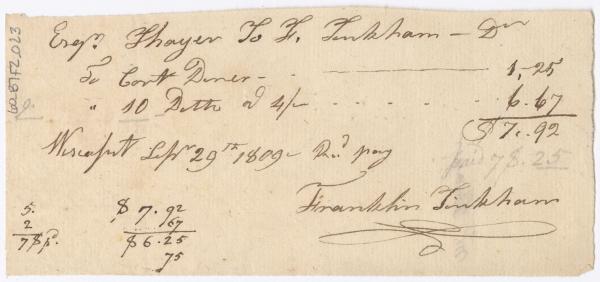 Esqr. Thayer To F. Tinkham — Dr
To Cort Diner - — 1,25
" 10 Ditto @ 4/ - - - - 6.67
$ 7.92
Wiscasset Sepr 29th 1809 - Recd pay
Franklin Tinkham
paid 7$.25
5.
2
7 $ pd.
$ 7.92
67
$ 6.25
75